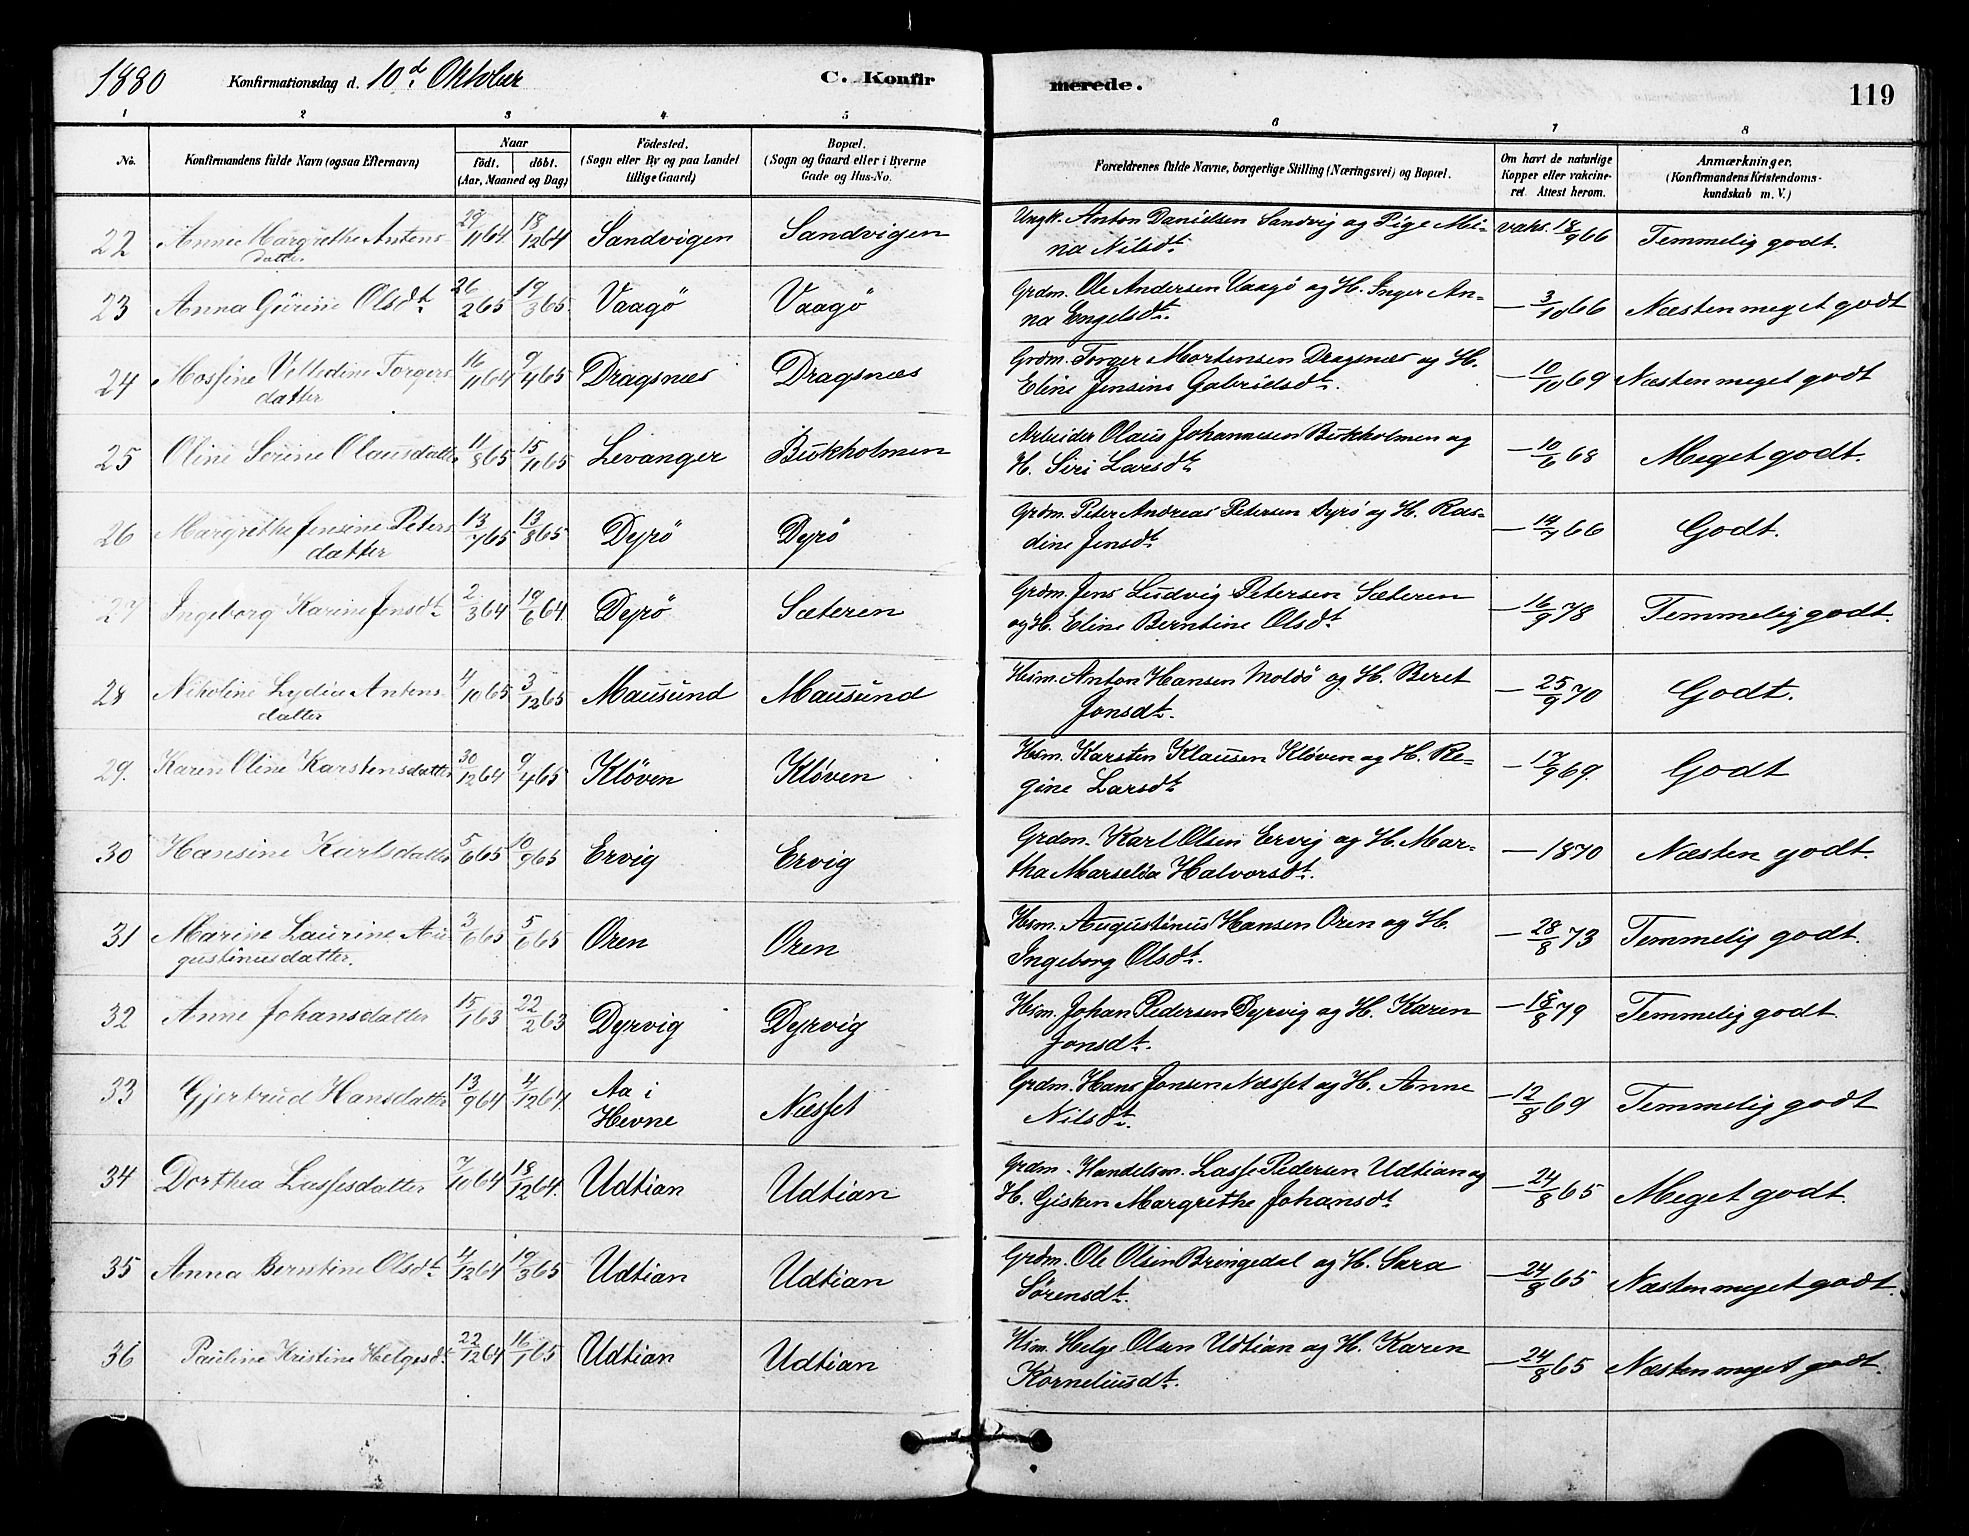 1880 Konfirmationsdag d. 10d. Oktober C. Konfirmerede. 119
1 2 3 4 5 6 7 8
No. Konfirmandens fulde Navn (ogsaa Efternavn) Naar födt. döbt. (Aar, Maaned og Dag) Födested. (Sogn eller By og paa Landet tillige Gaard) Bopæl. (Sogn og Gaard eller i Byerne Gade og Hus-No. Forældrenes fulde Navne, borgerlige Stilling (Næringsvei) og Bopæl. Om havt de naturlige Kopper eller vakcineret. Attest herom. Anmærkninger. (Konfirmandens Kristendomskundskab m. V.)
22 Anne Margrethe Antons 29/11 64. 18/12 64 Sandvigen Sandvigen Ungk. Anton Danielsen Sandvig og Pige Mi- vaks. 18/9 66 Temmelig godt.
datter na Nilsdt.
23 Anna Gurine Olsdt. 26/2 65 19/3 65. Vaagö Vaagö Grdm. Ole Andersen Vaagö og H. Inger An- — 3/10 66 Næsten meget godt
na Engelsdt.
24 Hossine Velledine Torgers 16/11 64 9/4 65 Dragsnæs Dragsnæs Grdm. Torger Mortensen Dragsnæs og H. — 10/10 69 Næsten meget godt
datter Eline Jensine Gabrielsdt.
25 Oline Serine Olausdatter 4/8 65 15/10 65 Levanger Bukholmen Arbeider Olaus Johannesen Bukholmen og — 10/6 68 Meget godt.
H. Siri Larsdt.
26 Margrethe Jensine Peters 13/7 65 13/8 65 Dyrö Dyrö Grdm. Peter Andreas Petersen Dyrø og H. Ras- — 14/7 66 Godt.
datter dine Jensdt.
27 Ingeborg Karine Jensdt. 2/3 64 19/6 64. Dyrö Sæteren Grdm. Jens Ludvig Petersen Sæteren — 16/9 78 Temmelig godt.
og H. Eline Berntine Olsdt.
28 Nikoline Lydia Antons- 4/10 65 3/12 65 Mausund Mausund Hsm. Anton Hansen Moldö og H. Beret — 25/9 70 Godt.
datter Jonsdt.
29. Karen Oline Karstensdatter 30/12 64 9/4 65 Klöven Klöven Hsm. Karsten Klausen Kløven og H. Re- — 17/9 69. Godt
gine Larsdt.
30 Hansine Karlsdatter 5/6 65 10/9 65 Ervig Ervig Grdm. Karl Olsen Ervig og H. Mar- — 1870 Næsten godt.
tha Marselia Halvorsdt.
31 Marine Laurine Au 3/6 65 5/6 65 Oren Oren Hsm. Augustinus Hansen Oren og H. — 28/8 73 Temmelig godt.
gustinusdatter. Ingeborg Olsdt.
32 Anne Johansdatter 15/1 63 22/2 63 Dyrvig Dyrvig Hsm. Johan Pedersen Dyrvig og H. Karen — 18/8 79 Temmelig godt
Jonsdt.
33 Gjertrud Hansdatter 13/9 64 4/12 64. Aa i Næsset Grdm. Hans Jonsen Næsset og H. Anne — 12/8 69 Temmelig godt
Hevne Nilsdt.
34 Dorthea Lassesdatter 7/10 64 18/12 64. Udtian Udtian Grdm. Handelsm. Lasse Pedersen Udtian og — 24/8 65 Meget godt.
H. Gisken Margrethe Johansdt.
35 Anna Berntine Olsdt. 4/12 64 19/3 65 Udtian Udtian Grdm. Ole Olsen Bringedal og H. Sara — 24/8 65 Næsten meget godt.
Sörensdt.
36 Pauline Kristine Helgesdt. 22/12 64 16/1 65 Udtian Udtian Hsm. Helge Olsen Udtian og H. Karen — 24/8 65 Næsten meget godt.
Korneliusdt.